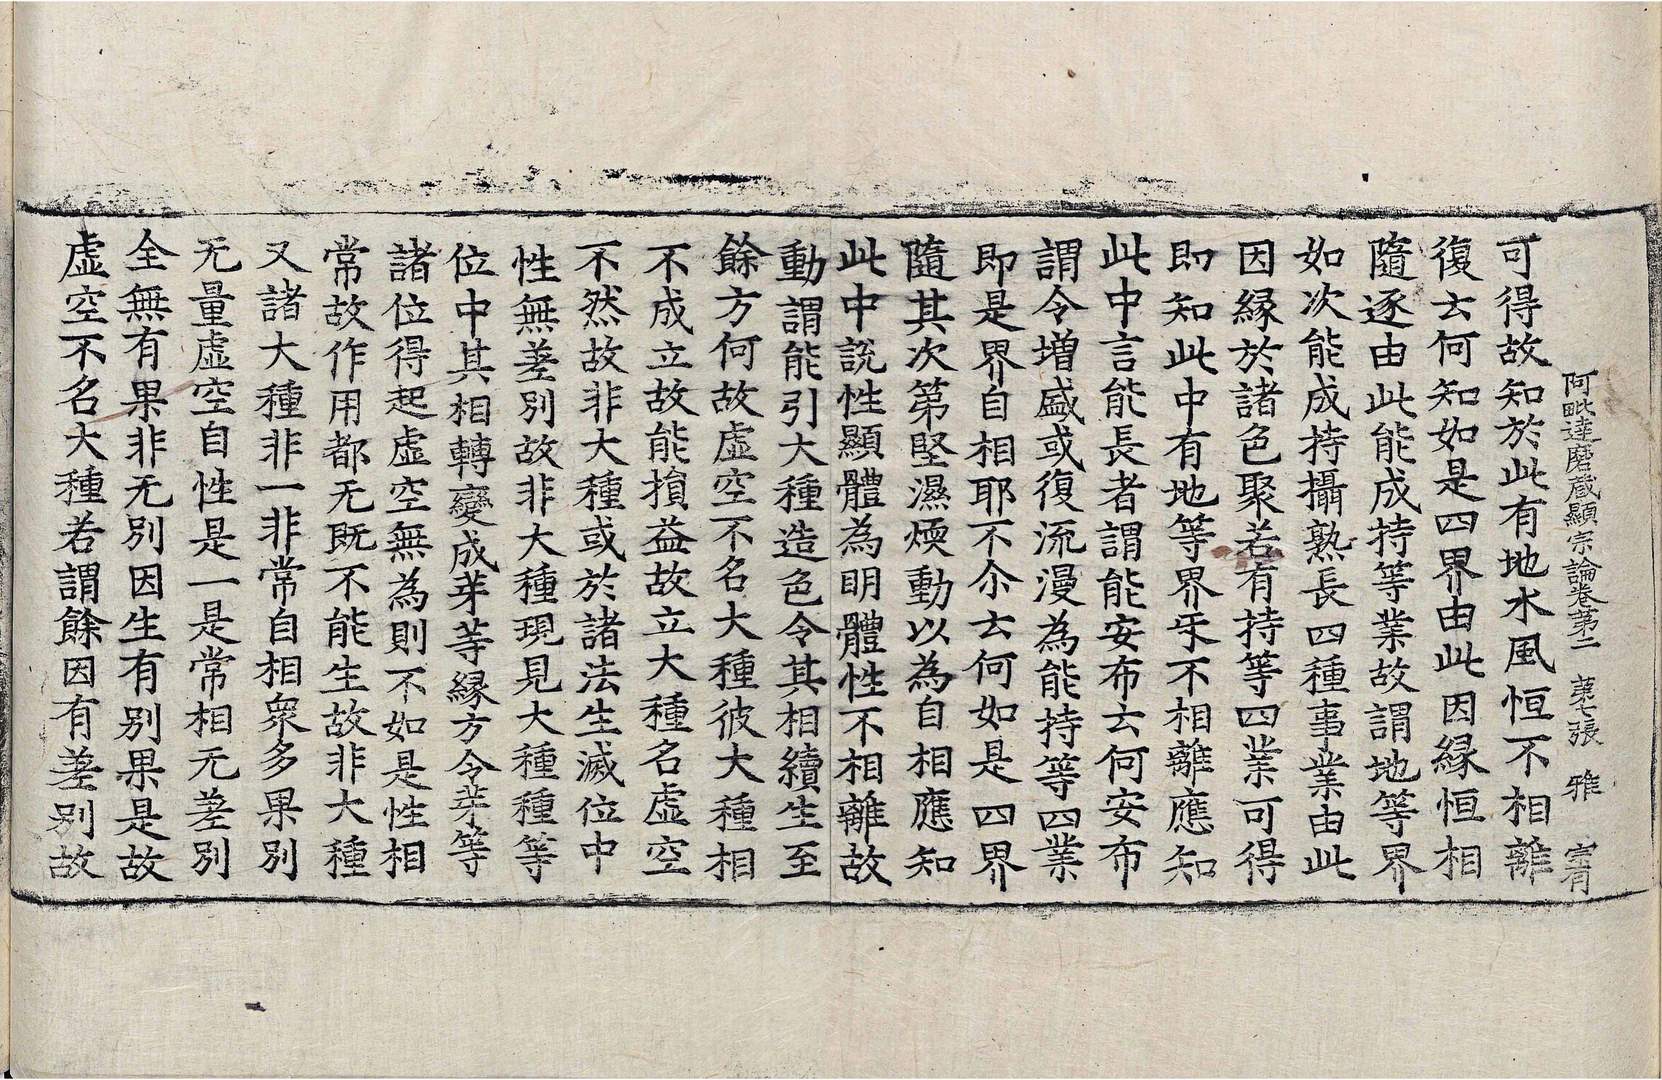 阿毗達磨蔵顯宗論卷第二　第七張　雅　宗有
可得故知於此有地水風恒不相離
復云何知如是四界由此因緣恒相
隨逐由此能成持等業故謂地等界
如次能成持攝熟長四種事業由此
因緣於諸色聚若有持等四業可得
即知此中有地等界㸦不相離應知
此中言能長者謂能安布云何安布
謂令增盛或復流漫為能持等四業
即是界自相耶不尒云何如是四界
隨其次第堅濕煖動以為自相應知
此中說性顯體為明體性不相離故
動謂能引大種造色令其相續生至
餘方何故虛空不名大種彼大種相
不成立故能損益故立大種名虛空
不然故非大種或於諸法生滅位中
性無差別故非大種現見大種種等
位中其相轉變成芽等緣方令芽等
諸位得起虛空無為則不如是性相
常故作用都无既不能生故非大種
又諸大種非一非常自相衆多果別
无量虛空自性是一是常相无差別
全無有果非无別因生有別果是故
虛空不名大種若謂餘因有差別故